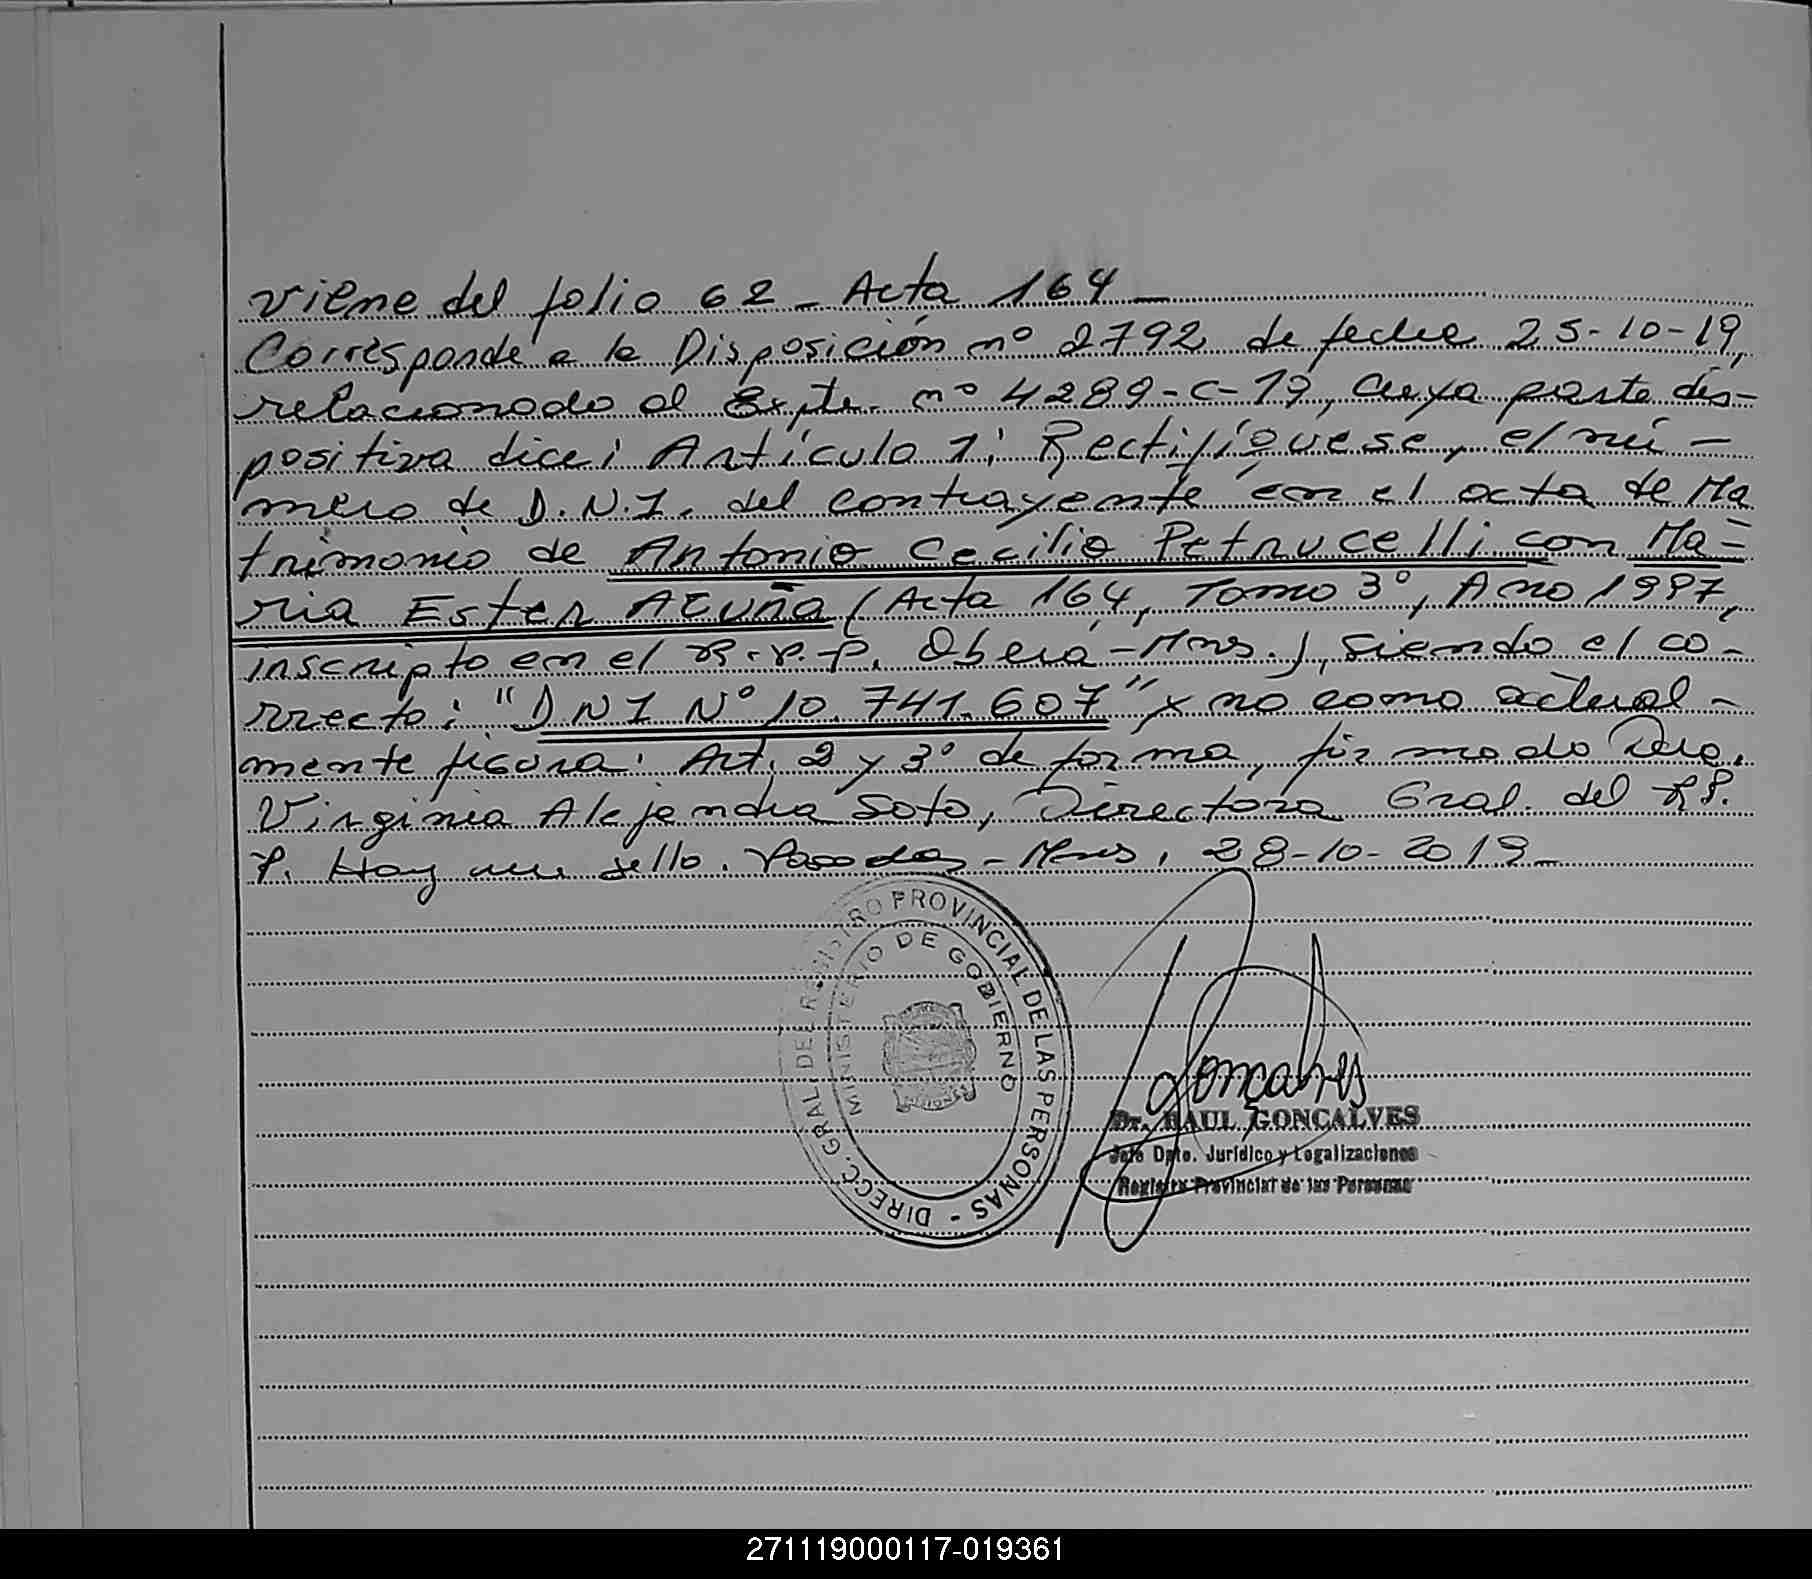 Viene del folio 62 - Acta 164 -
Corresponde a la Disposición nº 2792 de fecha 25-10-19,
relacionado al Expte. nº 4289-C-19, cuya parte dis-
positiva dice: Artículo 1: Rectifíquese, el nú-
mero de D.N.I. del contrayente en el acta de Ma
trimonio de Antonio Cecilio Petrucelli con Ma=
ria Ester Acuña (Acta 164, Tomo 3º, Año 1997,
inscripto en el R.P.P. Oberá-Mnes.), siendo el co-
rrecto: "DNI Nº 10.741.607" y no como actual-
mente figura. Art. 2 y 3º de forma, firmado Dra.
Virginia Alejandra Soto, Directora Gral. del R.P.
P. Hay un sello. Posadas - Mnes, 28-10-2019-
DIRECC. GRAL. DE REGISTRO PROVINCIAL DE LAS PERSONAS -
MINISTERIO DE GOBIERNO
Goncalves
Dr. RAUL GONCALVES
Jefe Dpto. Jurídico y Legalizaciones
Registro Provincial de las Personas
271119000117-019361